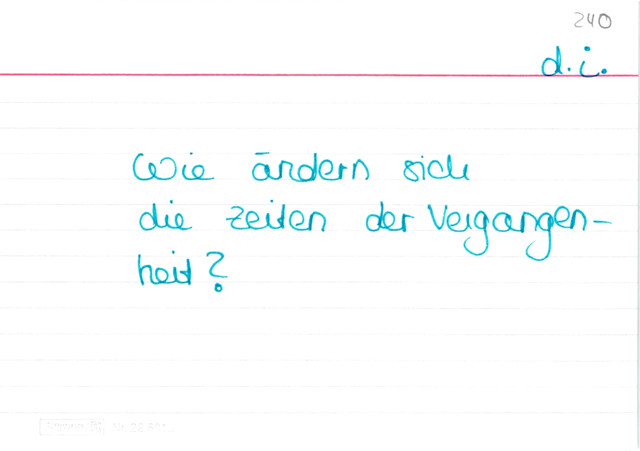 240
d.i.
Wie ändern sich
die Zeiten der Vergangen-
heit?